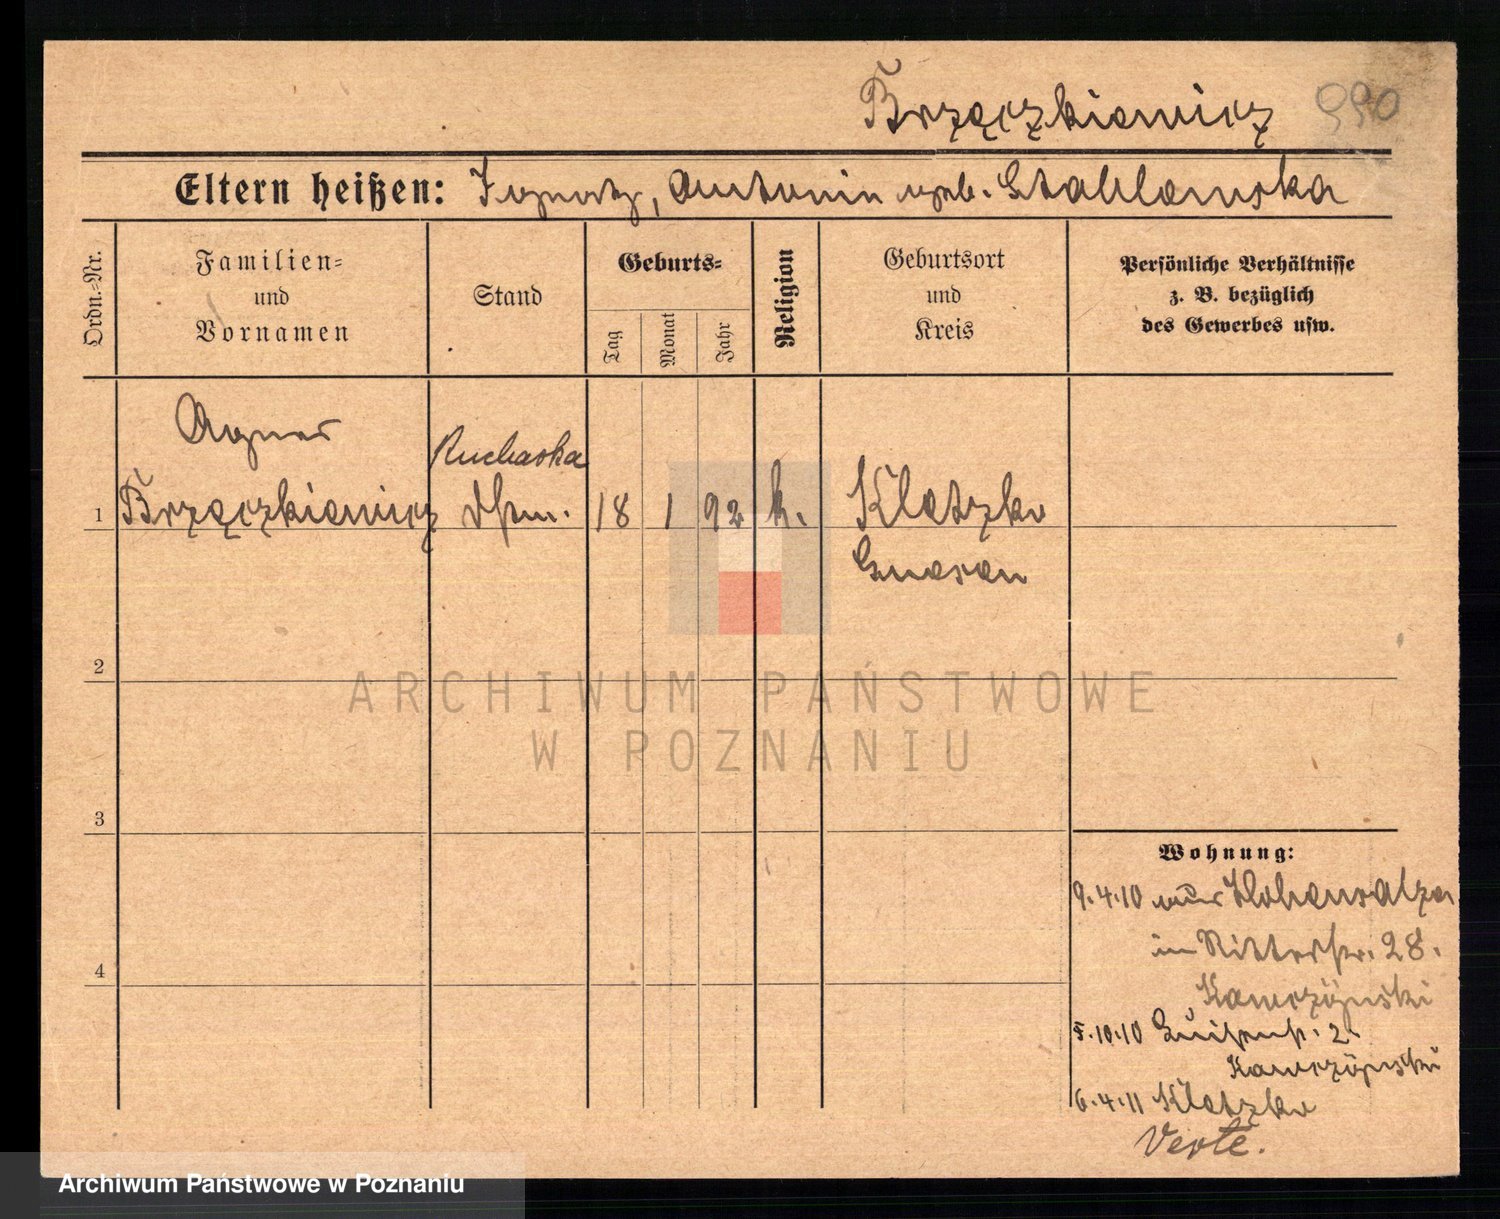 Brzęczkiewicz 990
Eltern heißen: Ignatz, Antonin geb. Stablewska
Ordn.-Nr.
Familien=
und
Vornamen
Stand
Geburts=
Tag
Monat
Jahr
Religion
Geburtsort
und
Kreis
Persönliche Verhältnisse
z. B. bezüglich
des Gewerbes usw.
Agnes
Brzęczkiewicz
1
18 1 92 k.
Kletzko
Gnesen
2
ARCHIWUM PAŃSTWOWE
W POZNANIU
3
4
Wohnung:
9.4.10 Hohensalza
in Ritterstr. 28.
5.10.10 Luisenst. 2.
6.4.11 Kletzko
Verte.
Archiwum Państwowe w Poznaniu